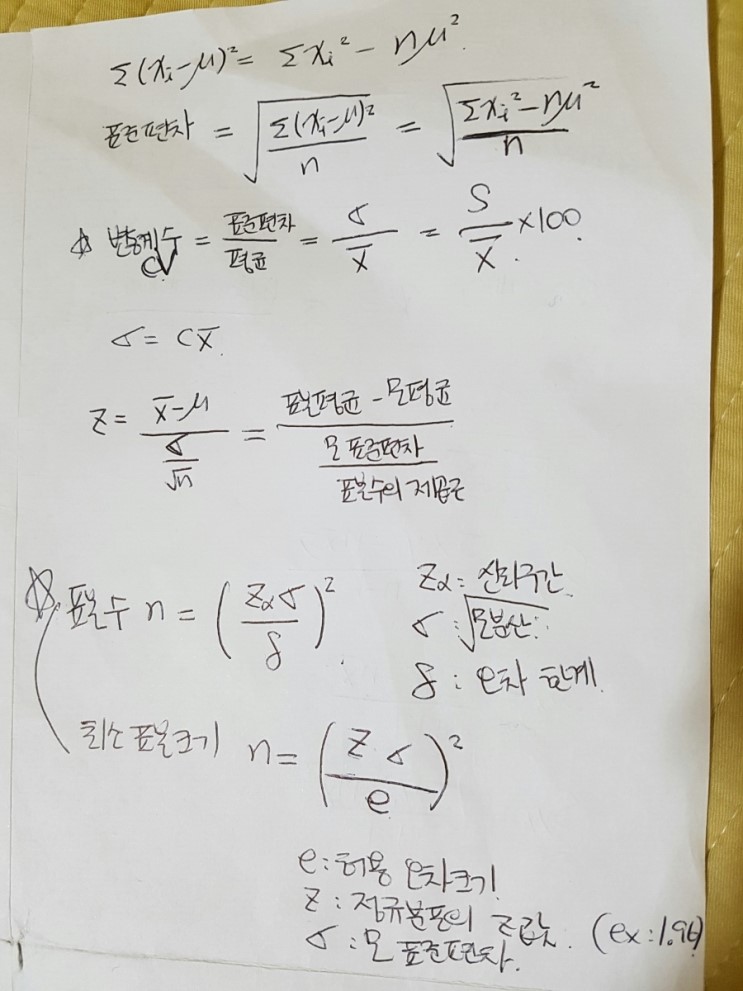 Σ(xᵢ-μ)² = Σxᵢ² - nμ²
표준편차 = √(Σ(xᵢ-μ)²/n) = √((Σxᵢ²-nμ²)/n)
☆ 변동계수 = 표준편차/평균 = σ/x̄ = S/x̄ ×100
CV
σ = Cx̄
Z = (x̄-μ)/(σ/√n) = (표본평균 - 모평균)/(모표준편차/표본수의 제곱근)
☆ 표본수 n = (Zασ/δ)²
Zα : 신뢰구간
σ : √모분산
δ : 오차 한계
최소표본크기 n = (Zσ/e)²
e : 허용 오차크기
Z : 정규분포의 Z값. (ex : 1.96)
σ : 모 표준편차.